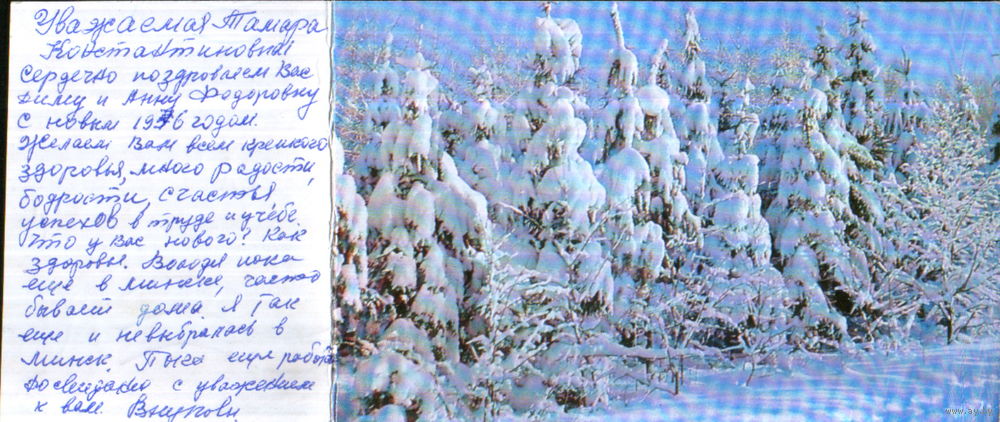 Уважаемая Тамара
Константиновна
Сердечно поздравляем Вас
Диму и Анну Федоровну
С новым 1976 годом.
Желаем Вам всем крепкого
здоровья, много радости,
бодрости, счастья,
успехов в труде и учебе.
Что у Вас нового? Как
здоровье. Володя пока
еще в минске, часто
бывает дома. Я так
еще и невыбралась в
Минск. еще работа
Досвидания с уважением
к вам
www.ay.by